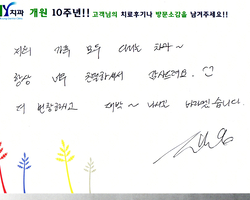 Y치과 개원 10주년!! 고객님의 치료후기나 방문소감을 남겨주세요!!
저희 가족 모두 치과~
항상 너무 친절하셔서 감사드려요.
더 번창하시고 대박~ 나시고 바라겠습니다.